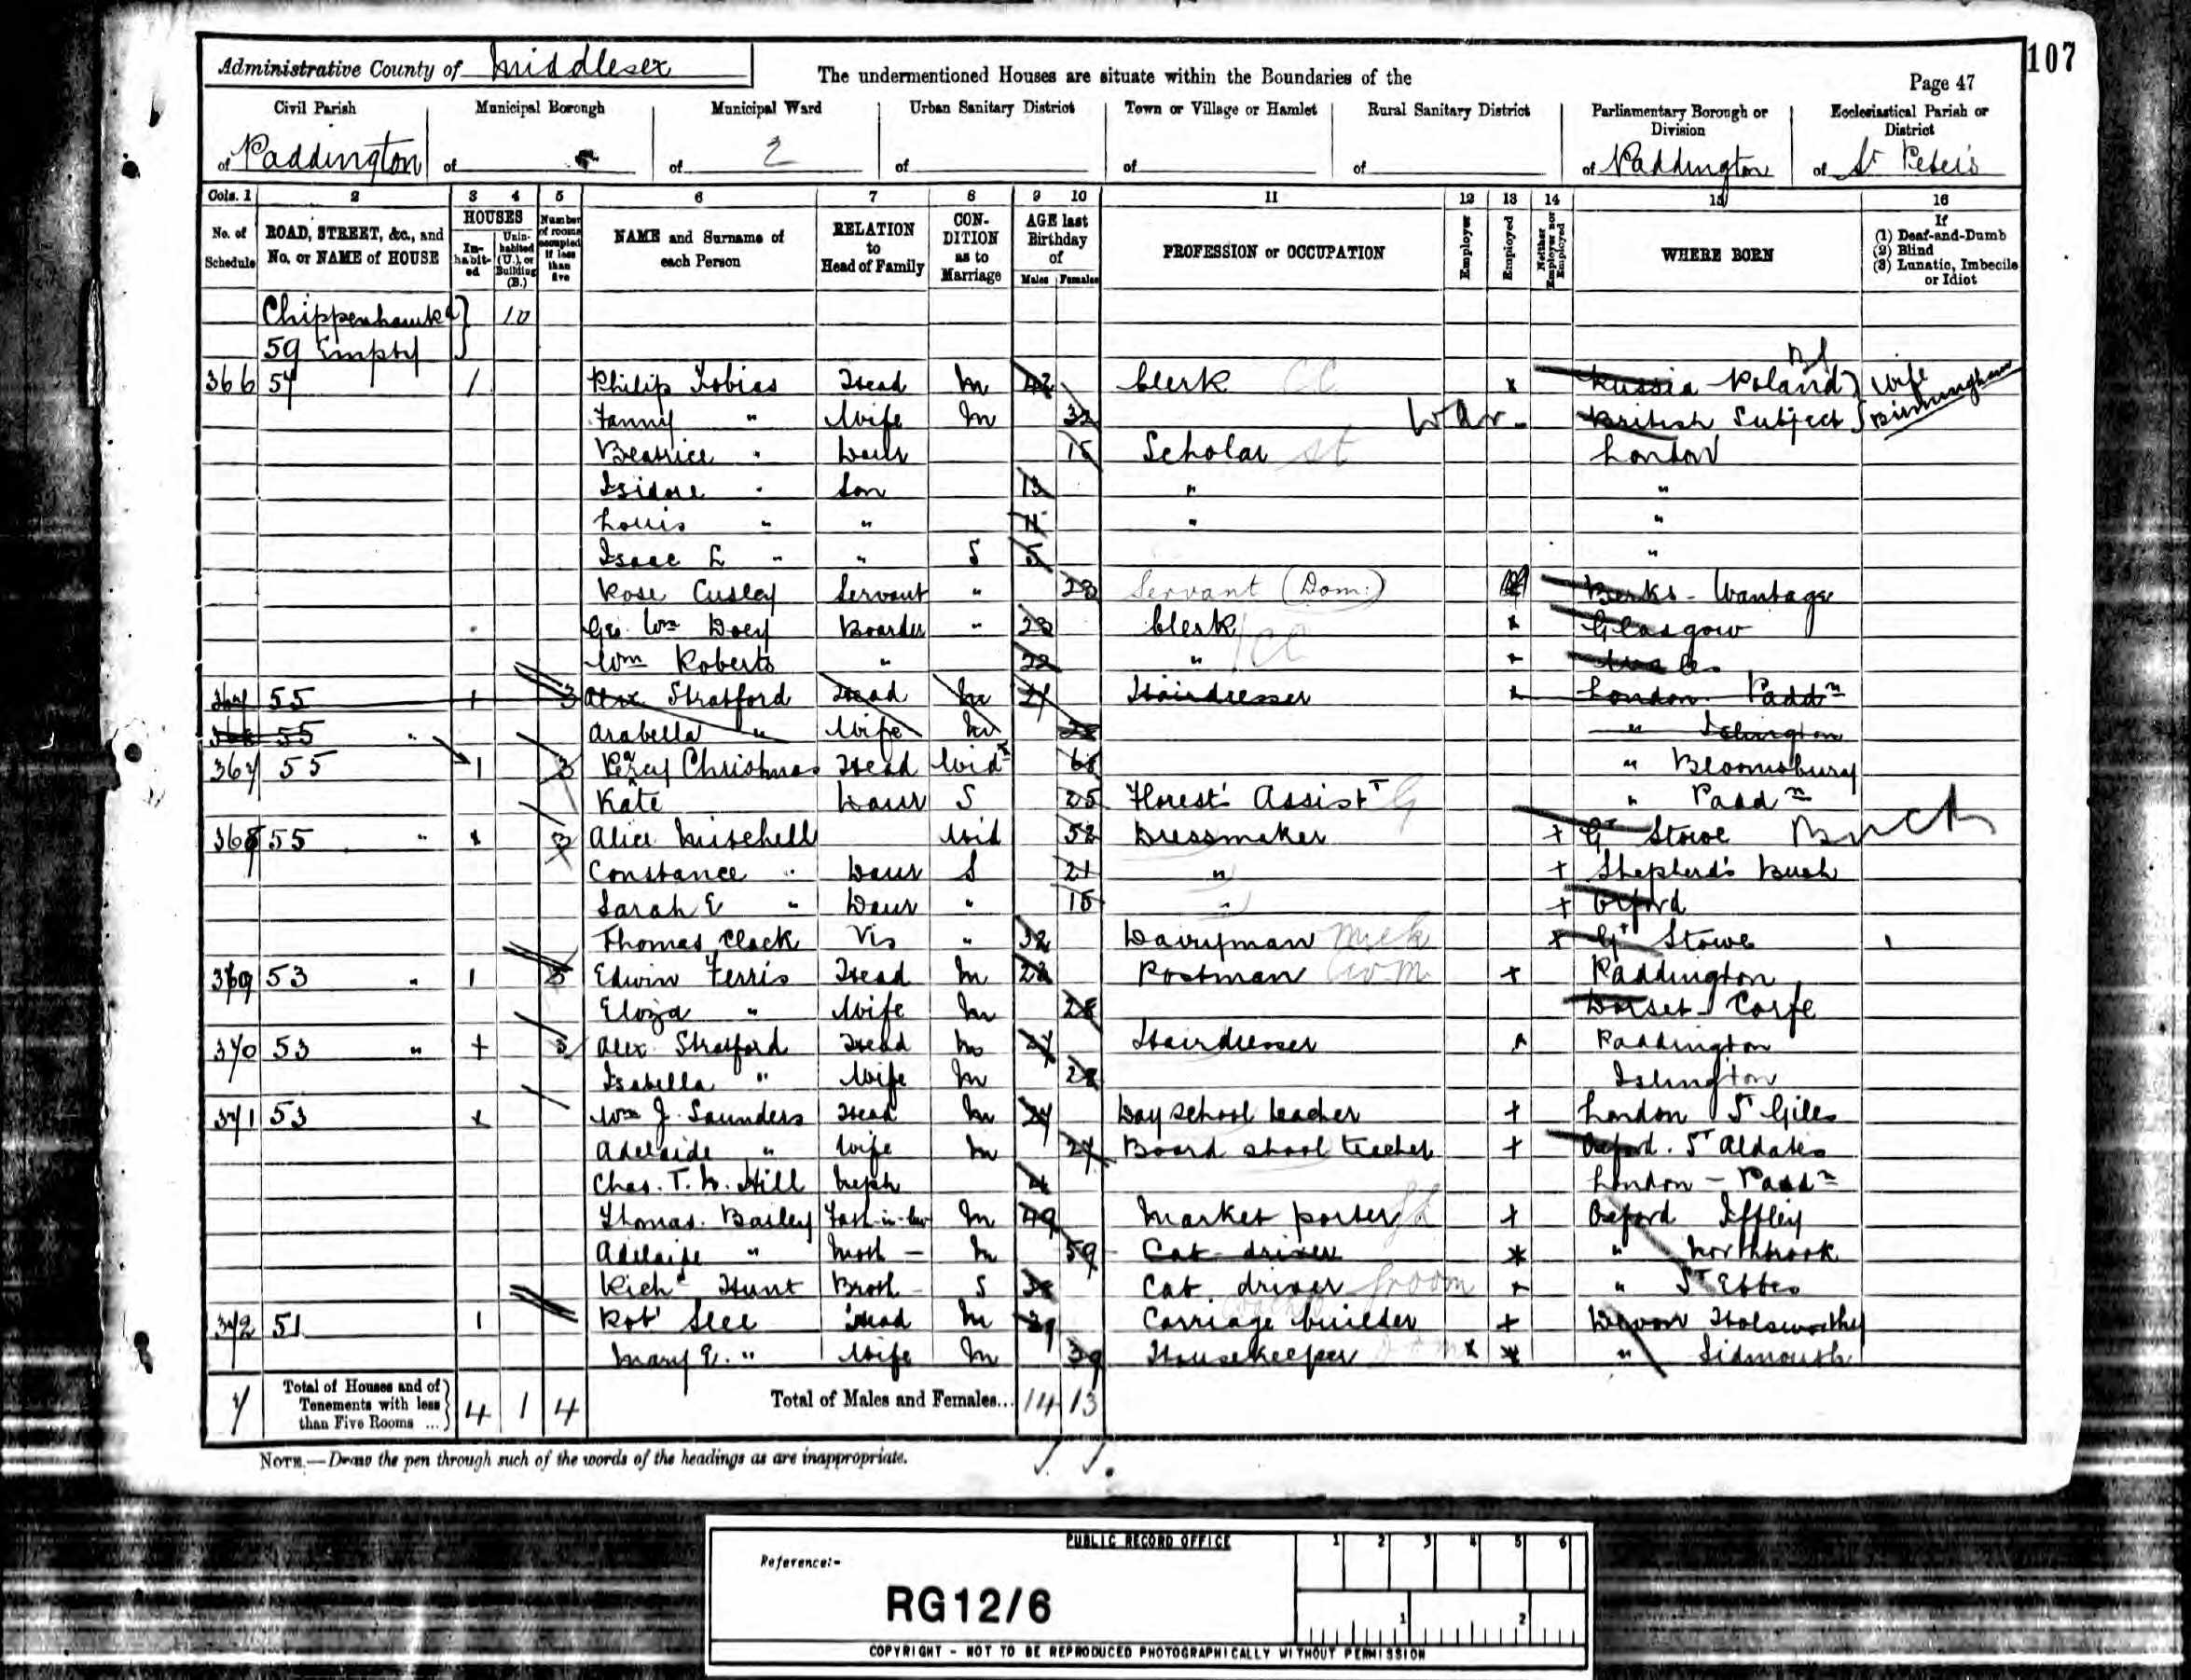 107
Administrative County of Middlesex
The undermentioned Houses are situate within the Boundaries of the
Page 47
Civil Parish
Municipal Borough
Municipal Ward
Urban Sanitary District
Town or Village or Hamlet
Rural Sanitary District
Parliamentary Borough or Division
Ecclesiastical Parish or District
of Paddington of of 2 of of of of Paddington of St Peter's
Cols. 1 2 3 4 5 6 7 8 9 10 11 12 13 14 15 16
No. of Schedule
ROAD, STREET, &c., and No. or NAME of HOUSE
HOUSES
Inhabited
Uninhabited (U.), or Building (B.)
Number of rooms occupied if less than five
NAME and Surname of each Person
RELATION to Head of Family
CONDITION as to Marriage
AGE last Birthday of
Males Females
PROFESSION or OCCUPATION
Employer
Employed
Neither Employer nor Employed
WHERE BORN
If
(1) Deaf-and-Dumb
(2) Blind
(3) Lunatic, Imbecile or Idiot
59 Empty
366 57 1 Philip Tobias Head M 42 Clerk CC x Russia Poland } Wife
Fanny " Wife M 32 War. British Subject Birmingham
Beatrice " Daur 15 Scholar St London
Isidore " Son 13 " "
Louis " " 11 " "
Isaac L " " S 5 "
Rose Cusley Servant " 23 Servant (Dom:) Berks - Wantage
Geo. Wm Doey Boarder " 23 Clerk CC x Glasgow
Wm Roberts " 22 " x
367 55 1 3 Alex Stratford Head M 27 Hairdresser x London Paddn
55 " Arabella " Wife M 28 " Islington
367 55 1 3 Christmas Head Wid 61 " Bloomsbury
Kate Daur S 25 Florest's Assistt " Paddn
368 55 " x 3 Alice Mitchell Wid 52 Dressmaker + Gt Stowe Buck
Constance " Daur S 21 " + Shepherd's Bush
Sarah E " Daur " 15 " + Oxford
Thomas Clack Vis " 32 Dairyman Milk x Gt Stowe
369 53 " 1 3 Edwin Ferris Head M 28 Postman + Paddington
Eliza " Wife M 28 Dorset Corfe
370 53 " + 3 Alex Stratford Head M 27 Hairdresser x Paddington
Isabella " Wife M 28 Islington
371 53 x Wm J. Saunders Head M 27 Day School teacher + London St Giles
Adelaide " Wife M 27 Board shool teacher + Oxford. St Aldates
Chas. T. W. Hill Neph 4 London - Paddn
Thomas Bailey Fath-in-law M 49 Market porter + Oxford Iffley
Adelaide " Moth - M 59 Cab driver x " Northbrook
Richd Hunt Broth - S 38 Cab driver Groom x " St Ebbes
372 51 1 Robt Slee Head M 39 Carriage builder + Devon Holsworthy
Mary E. " Wife M 39 Housekeeper Dom x x " Sidmouth
7 Total of Houses and of Tenements with less than Five Rooms ... 4 1 4 Total of Males and Females... 14 13
NOTE.—Draw the pen through such of the words of the headings as are inappropriate.
PUBLIC RECORD OFFICE
1 2 3 4 5 6
Reference:-
RG12/6
1 2
COPYRIGHT - NOT TO BE REPRODUCED PHOTOGRAPHICALLY WITHOUT PERMISSION